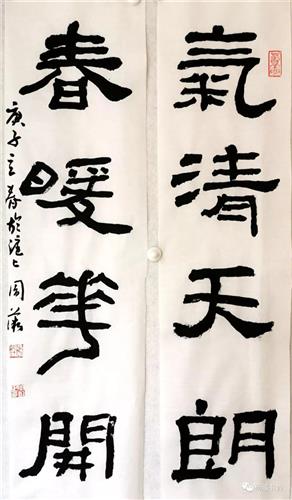 氣清天朗
春暖華開
庚子立春於滬上 周